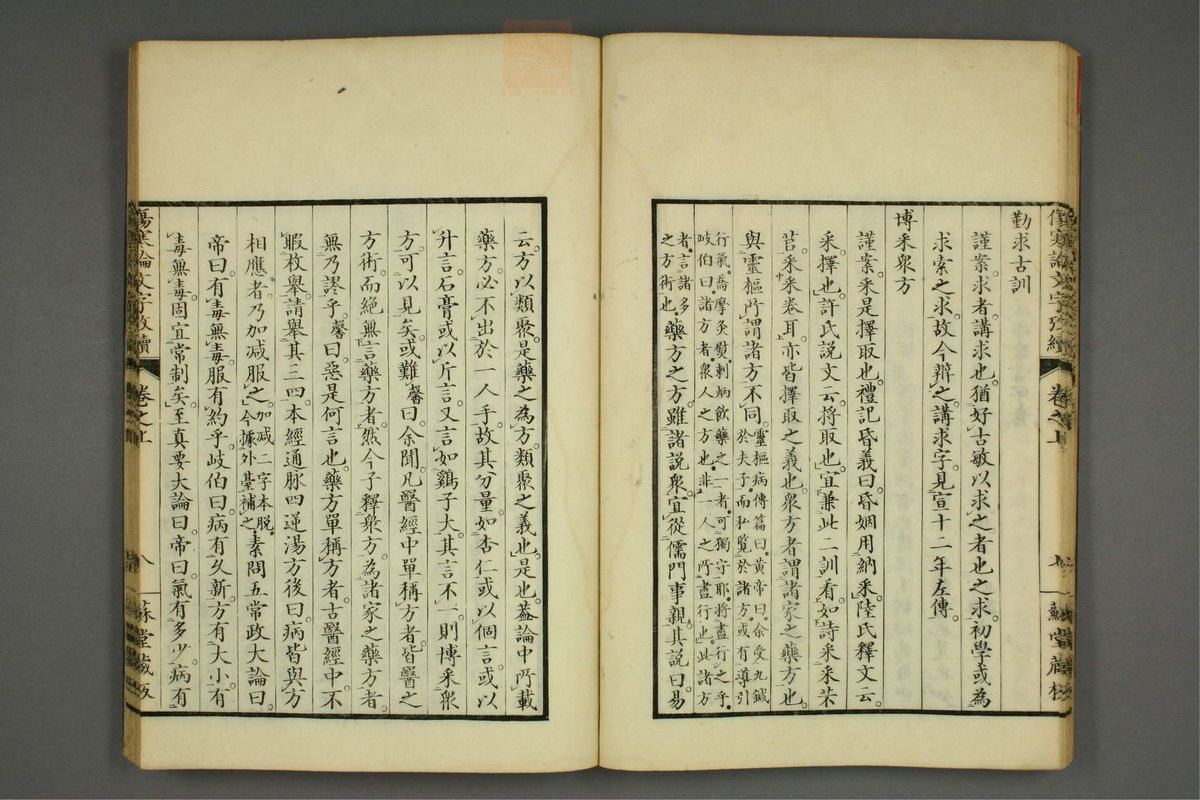 勤求古訓
謹案求者講求也猶好古敏以求之者也之求初學或為
求索之求故今辨之講求字見宣十二年左傳
博采衆方
謹案采是擇取也禮記昏義曰昏姻用納采陸氏釋文云
采擇也許氏說文云將取也宜兼此二訓看如詩采采芣
苢采采卷耳亦皆擇取之義也衆方者謂諸家之藥方也
與靈樞所謂諸方不同靈樞病傳篇曰黃帝曰余受九鍼
於夫子而私覽於諸方或有導引
行氣喬摩灸熨刺焫飲藥之一者可獨守耶將盡行之乎
岐伯曰諸方者衆人之方也非一人之所盡行也此諸方
者言諸多
之方術也藥方之方雖諸說衆宜從儒門事親其說曰易
云方以類聚是藥之為方類聚之義也是也蓋論中所載
藥方必不出於一人手故其分量如杏仁或以個言或以
升言石膏或以斤言又言如鷄子大其言不一則博采衆
方可以見矣或難馨曰余聞凡醫經中單稱方者皆醫之
方術而絕無言藥方者然今子釋衆方為諸家之藥方者
無乃謬乎馨曰惡是何言也藥方單稱方者古醫經中不
暇枚舉請舉其三四本經通脉四逆湯方後曰病皆與方
相應者乃加減服之加減二字本脫
今據外臺補之素問五常政大論曰
帝曰有毒無毒服有約乎岐伯曰病有久新方有大小有
毒無毒固宜常制矣至真要大論曰帝曰氣有多少病有
傷寒論文字攷續
卷之上
八
蘇堂藏板